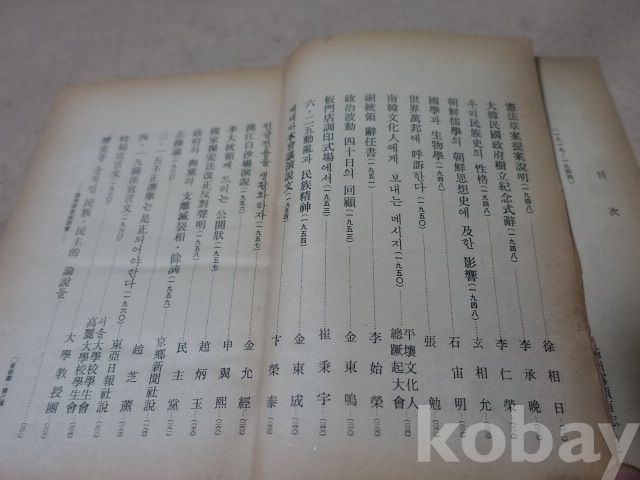 目次
憲法草案提案說明(一九四八) 徐相日
大韓民國政府樹立紀念式辭(一九四八) 李承晩
우리民族史의 性格(一九四八) 李仁榮
朝鮮儒學의 朝鮮思想史에 及한 影響(一九四八) 玄相允
國學과 生物學(一九四八) 石宙明
世界萬邦에 呼訴한다 張勉
南韓文化人에게 보내는 메시지(一九五〇) 平壤文化人總蹶起大會
副統領 辭任書(一九五一) 李始榮
政治波動 四十日의 回顧 金東鳴
板門店調印式場에서(一九五三) 崔秉宇
六·二五動亂과 民族精神(一九五四) 金東成
本會議演說文(一九五四) 卞榮泰
生活化하자(一九五七) 金允經
漢江白沙場演說 申翼熙
李大統領께 드리는 公開狀(一九五七) 趙炳玉
國家保安法改正反對聲明(一九五八) 民主黨
政府와 與黨의 支離滅裂相·餘滴(一九五九) 京鄕新聞社說
志操論 趙芝薰
三·一五不正選擧는 是正되어야한다(一九六〇) 東亞日報社說
四·一九關係宣言文(一九六〇) 서울大學校學生會
高麗大學校學生會
時局宣言文(一九六〇) 大學教授團
民族·民主的 論說들
kobay